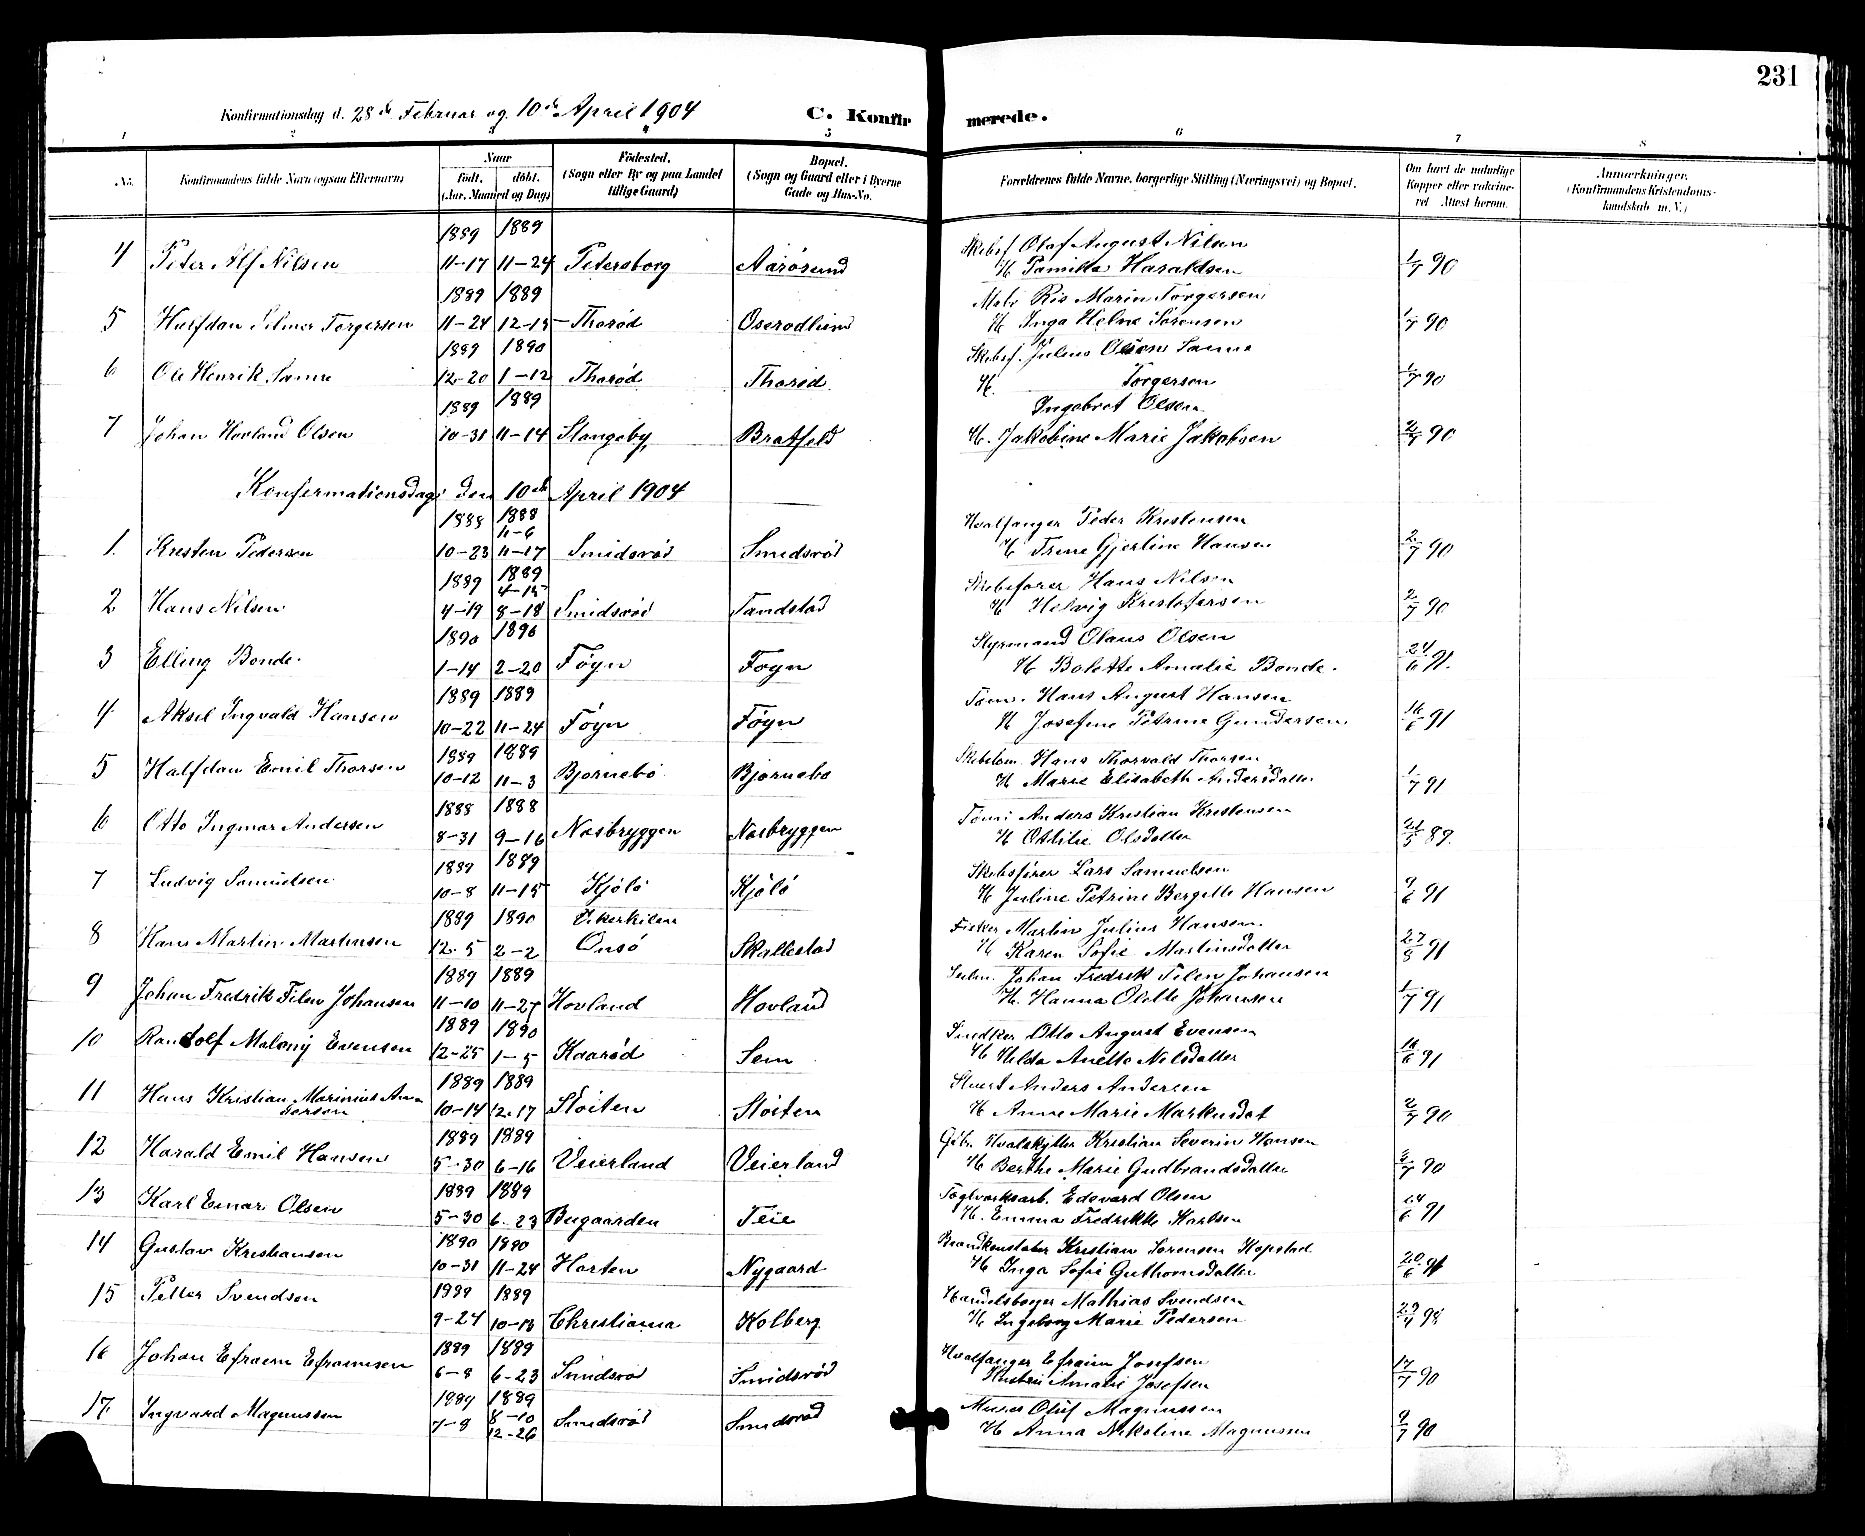 231
Konfirmationsdag d. 28de Februar og 10de April 1904 C. Konfir merede.
1 2 3 4 5 6 7 8
No. Konfirmandens fulde Navn (ogsaa Efternavn) Naar Födested. Bopæl. Forældrenes fulde Navne, borgerlige Stilling (Næringsvei) og Bopæl. Om havt de naturlige Anmærkninger.
født. döbt. (Sogn eller By og paa Landet (Sogn og Gaard eller i Byerne Kopper eller vakcine- (Konfirmandens Kristendoms-
(Aar, Maaned og Dag) tillige Gaard) Gade og Hus-No. ret Attest herom. kundskab m. V.)
1889 1889 Skibsf. Olaf August Nilsen
4 Peter Alf Nilsen 11-17 11-24 Petersborg Aarösund H Tamilla Haraldsen 1/7 90
1889 1889 Ris Marin Torgersen
5 Halfdan Hilmer Torgersen 11-24 12-15 Thoröd Oserodlund H Inga Helne Sörensen 1/7 90
1889 1890 Skibsf. Julius Olsen Sanne
6 Ole Henrik Sanne 12-20 1-12 Thoröd Thoröd H. Torgersen 1/7 90
1889 1889 Ingebret Olsen
7 Johan Hovland Olsen 10-31 11-14 Slangeby Bratfeld H. Jakobine Marie Jakobsen 2/7 90
Konfirmationsdag den 10de April 1904
1888 1888 Hvalfanger Peder Kristensen
11-6
1. Kresten Pedersen 10-23 11-17 Smidsröd Smidsröd H Trine Gjerline Hansen 2/7 90
1889 1889 Skibsförer Hans Nilsen
4-15
2 Hans Nilsen 4-19 8-18 Smidsröd Tandstad H Helvig Kristofersen 2/7 90
1890 1890 Styrmand Olaus Olsen
3 Elling Bonde 1-14 2-20 Föyn Foyn H Bolette Amalie Bonde. 24/6 91.
1889 1889 Töm. Hans August Hansen
4 Aksel Ingvald Hansen 10-22 11-24 Föyn Föyn H Josefine Petrine Gundersen 16/6 91
1889 1889 Skibstöm. Hans Thorvald Thorsen
5 Halfdan Emil Thorsen 10-12 11-3 Bjornebö Bjornebo H Marie Elisabeth Andersdatter 1/7 91
1888 1888 Tömi Anders Kristian Kristensen
6 Otto Ingmar Andersen 8-31 9-16 Næsbryggen Næsbryggen H Ottilie Olsdatter 21/5 89.
1889 1889 Skibsförer Lars Samuelsen
7 Ludvig Samuelsen 10-8 11-15 Kjölö Kjölö H Juline Petrine Bergitte Hansen 9/6 91
1889 1890 Fisker Martin Julius Hansen
8 Hans Martin Martinsen 12-5 2-2 Onsö Skallestad H Karen Sofie Martinsdatter 27/8 91
1889 1889 Johan Fredrik Filen Johansen
9 Johan Fredrik Filen Johansen 11-10 11-27 Hovland Hovland H. Hanna Olette Johansen 1/7 91
1889 1890 Snedker Otto August Evensen
10 Randolf Malony Evensen 12-25 1-5 Kaaröd Sem H Hilda Anette Nilsdatter 16/6 91
1889 1889 Stuert Anders Andersen
11 Hans Kristian Marinius An-
dersen 10-14 12-17 Stöiten Stöiten H Anne Marie Markusdat 2/7 90
1889 1889 Gbr. Hvalskytter Kristian Severin Hansen
12 Harald Emil Hansen 5-30 6-16 Veierland Veierland H Berthe Marie Gudbrandsdatter 2/7 90
1889 1889 Teglværksarb. Edevard Olsen
13 Karl Einar Olsen 5-30 6-23 Bugaarden Teie H. Emma Fredrikke Karlsen 24/6 91
1890 1890 Brandkonstabel Kristian Sorensen Hopstad
14 Gustav Kristiansen 10-31 11-24 Horten Nygaard H Inga Sofie Guthormsdatter 20/6 91
1889 1889 Handelsborger Mathias Svendsen
15 Petter Svendsen 9-24 10-13 Christiania Kolberg H Ingeborg Marie Pedersen 29/4 98
1889 1889 Hvalfanger Efraim Josefsen
16 Johan Efraem Efraimsen 6-8 6-23 Smidsröd Smidsröd Hustru Amalie Josefsen 17/7 90
1889 1889 Oluf Magnussen
17. Ingvard Magnussen 7-8 8-10 Smidsröd Smidsröd H Anna Nikoline Magnussen 9/7 90
12-26